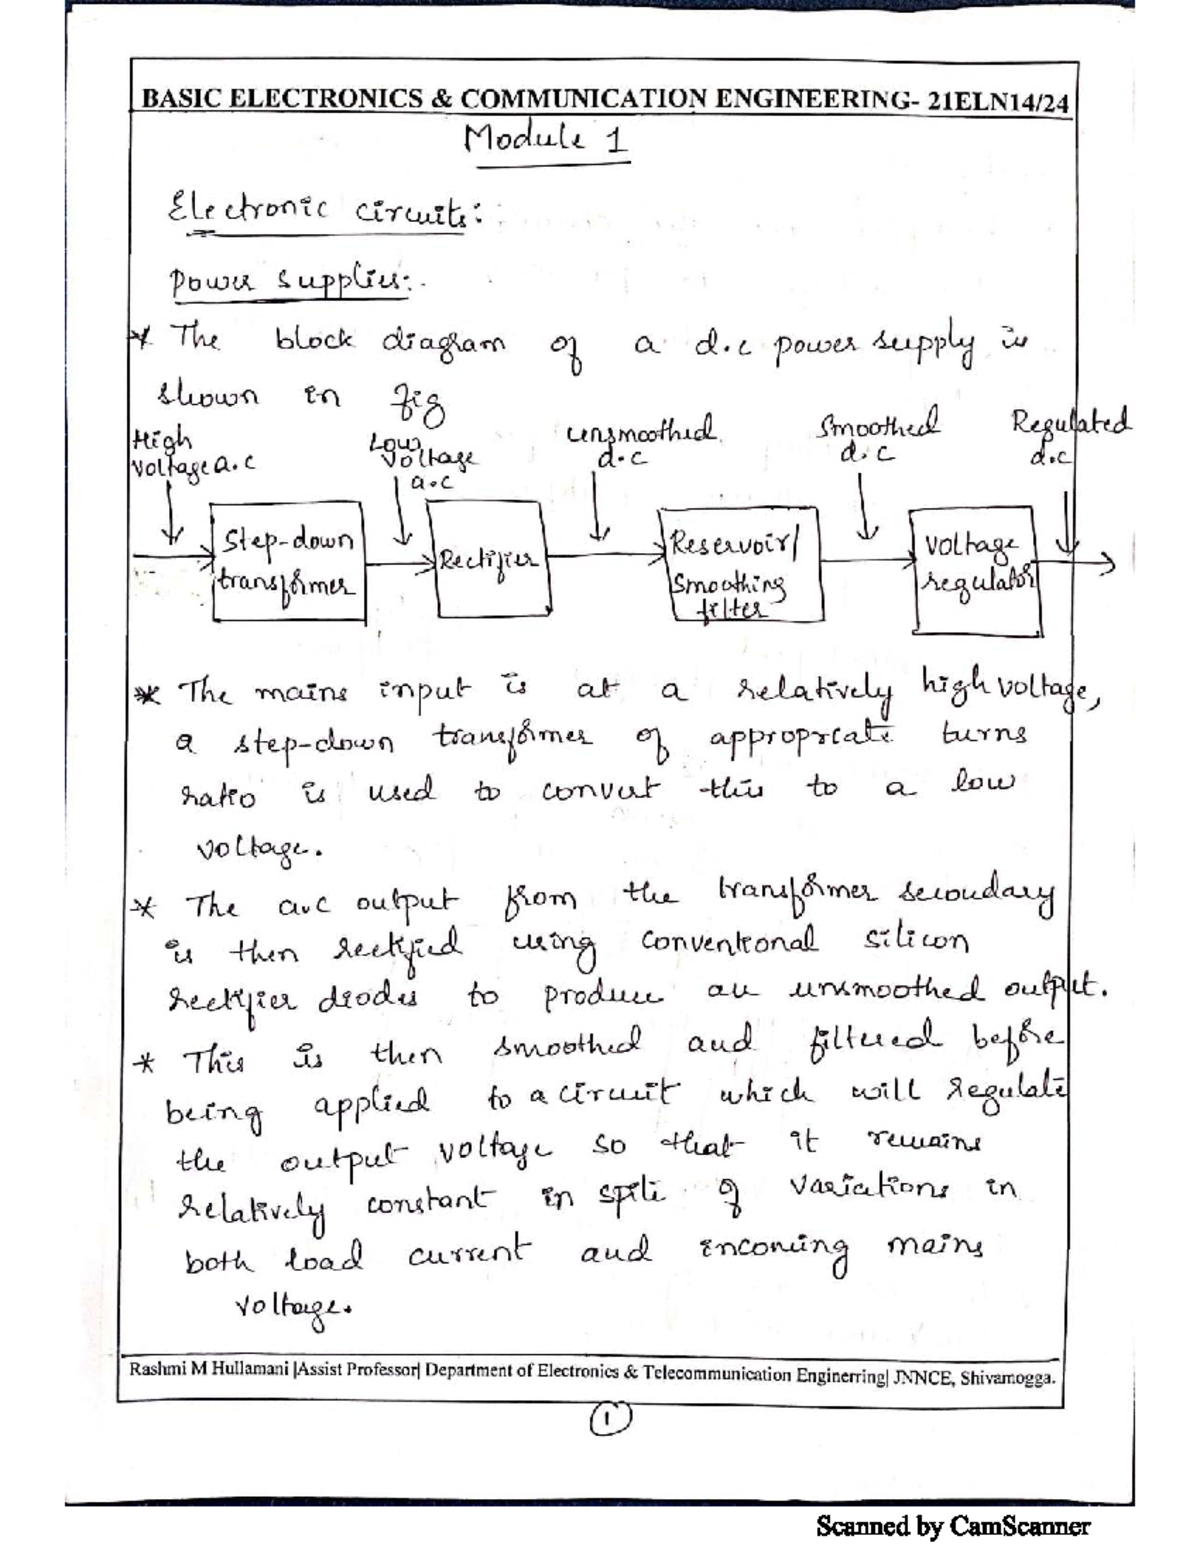 BASIC ELECTRONICS & COMMUNICATION ENGINEERING- 21ELN14/24
Module 1
Electronic circuits:
Power supplies:
* The block diagram of a d.c power supply is
shown in fig
High voltage a.c
Low voltage a.c
unsmoothed d.c
Smoothed d.c
Regulated d.c
Step-down transformer
Rectifier
Reservoir/ Smoothing filter
voltage regulator
* The mains input is at a relatively high voltage,
a step-down transformer of appropriate turns
ratio is used to convert this to a low
voltage.
* The a.c output from the transformer secondary
is then rectified using conventional silicon
rectifier diodes to produce an unsmoothed output.
* This is then smoothed and filtered before
being applied to a circuit which will regulate
the output voltage so that it remains
relatively constant in spite of variations in
both load current and incoming mains
voltage.
Rashmi M Hullamani |Assist Professor| Department of Electronics & Telecommunication Enginerring| JNNCE, Shivamogga.
1
Scanned by CamScanner